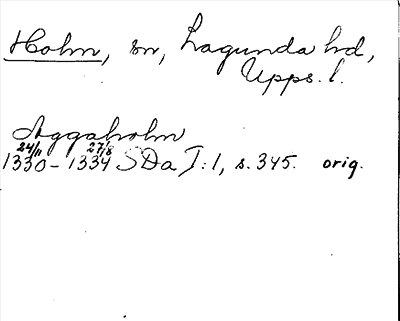 Holm, sn, Lagunda hd,
Upps. l.
Aggaholm
24/11 27/8
1330 - 1334 SDa I:1, s. 345. orig.